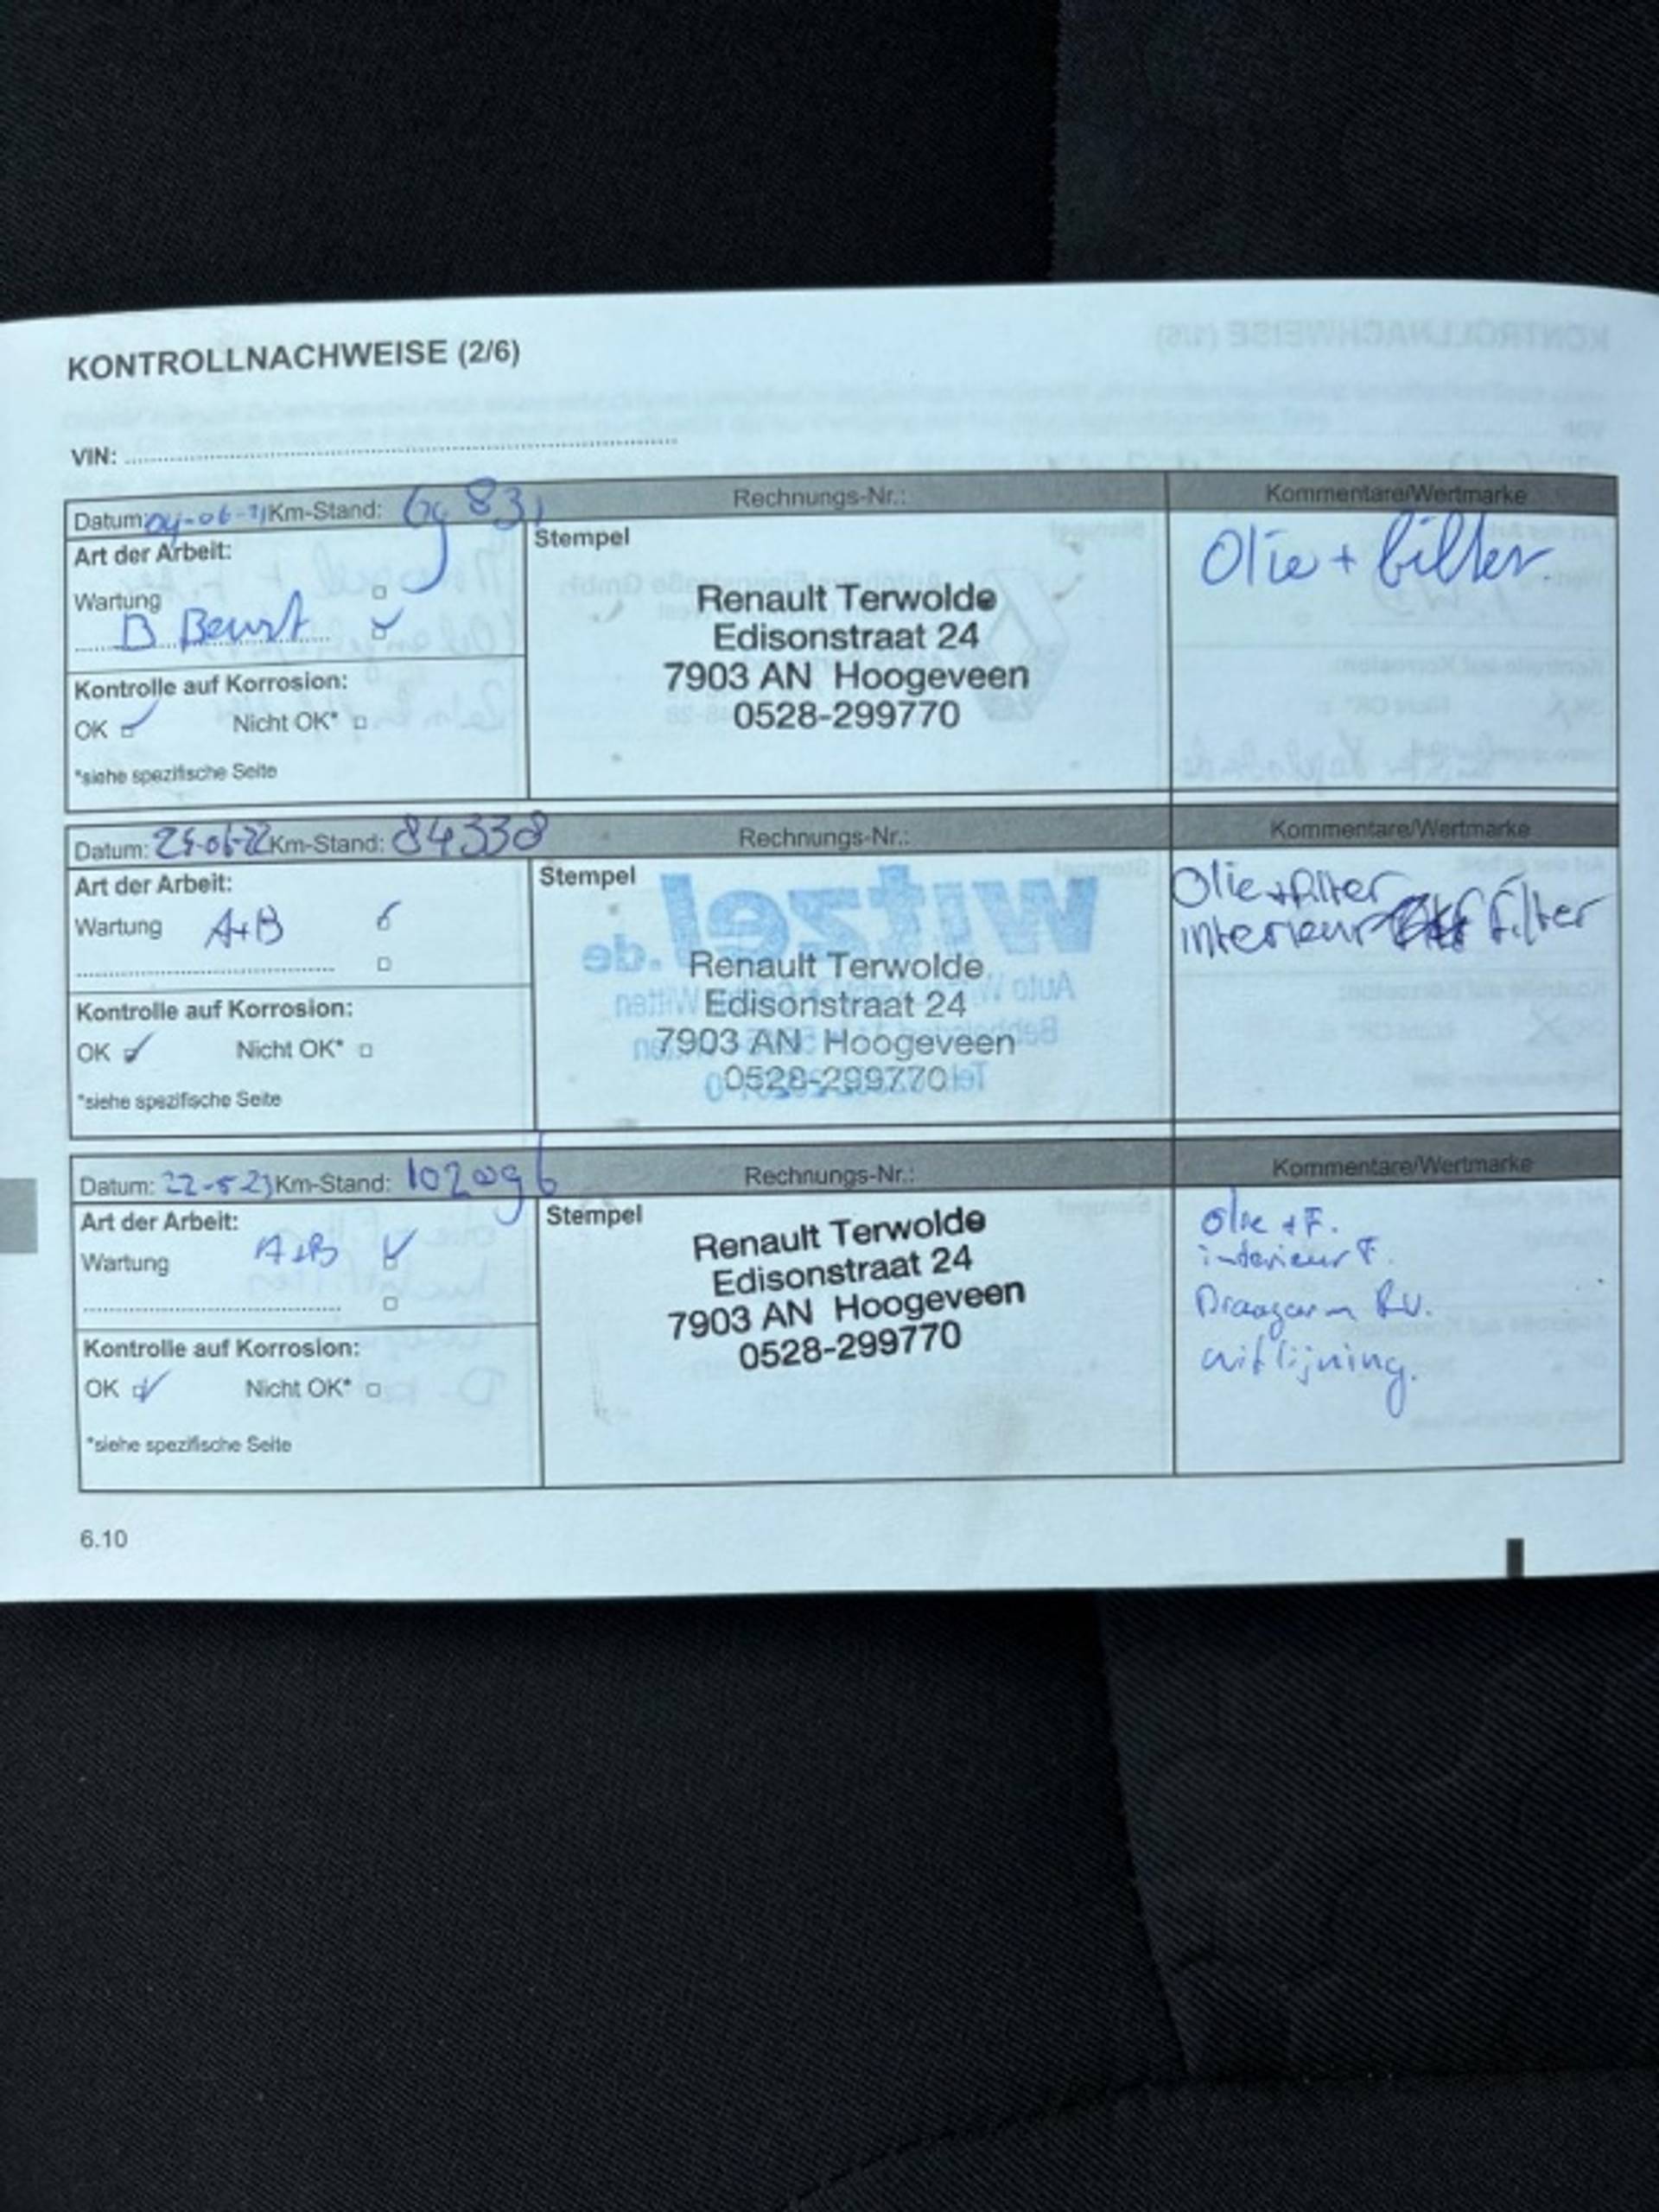 KONTROLLNACHWEISE (2/6)
VIN:
Datum: 04-06-21 Km-Stand: 69831 Rechnungs-Nr.: Kommentare/Wertmarke
Art der Arbeit:
Wartung
B Beurt
Kontrolle auf Korrosion:
OK Nicht OK*
*siehe spezifische Seite
Stempel
Renault Terwolde
Edisonstraat 24
7903 AN Hoogeveen
0528-299770
Olie + filter
Datum: Km-Stand: 84338 Rechnungs-Nr.: Kommentare/Wertmarke
Art der Arbeit:
Wartung A+B
Kontrolle auf Korrosion:
OK Nicht OK*
*siehe spezifische Seite
Stempel
Renault Terwolde
Edisonstraat 24
7903 AN Hoogeveen
0528-299770
Olie+filter
interieur filter
Datum: 22-5-23 Km-Stand: 102096 Rechnungs-Nr.: Kommentare/Wertmarke
Art der Arbeit:
Wartung A+B
Kontrolle auf Korrosion:
OK Nicht OK*
*siehe spezifische Seite
Stempel
Renault Terwolde
Edisonstraat 24
7903 AN Hoogeveen
0528-299770
olie + F.
interieur F.
Draagarm R.V.
uitlijning.
6.10